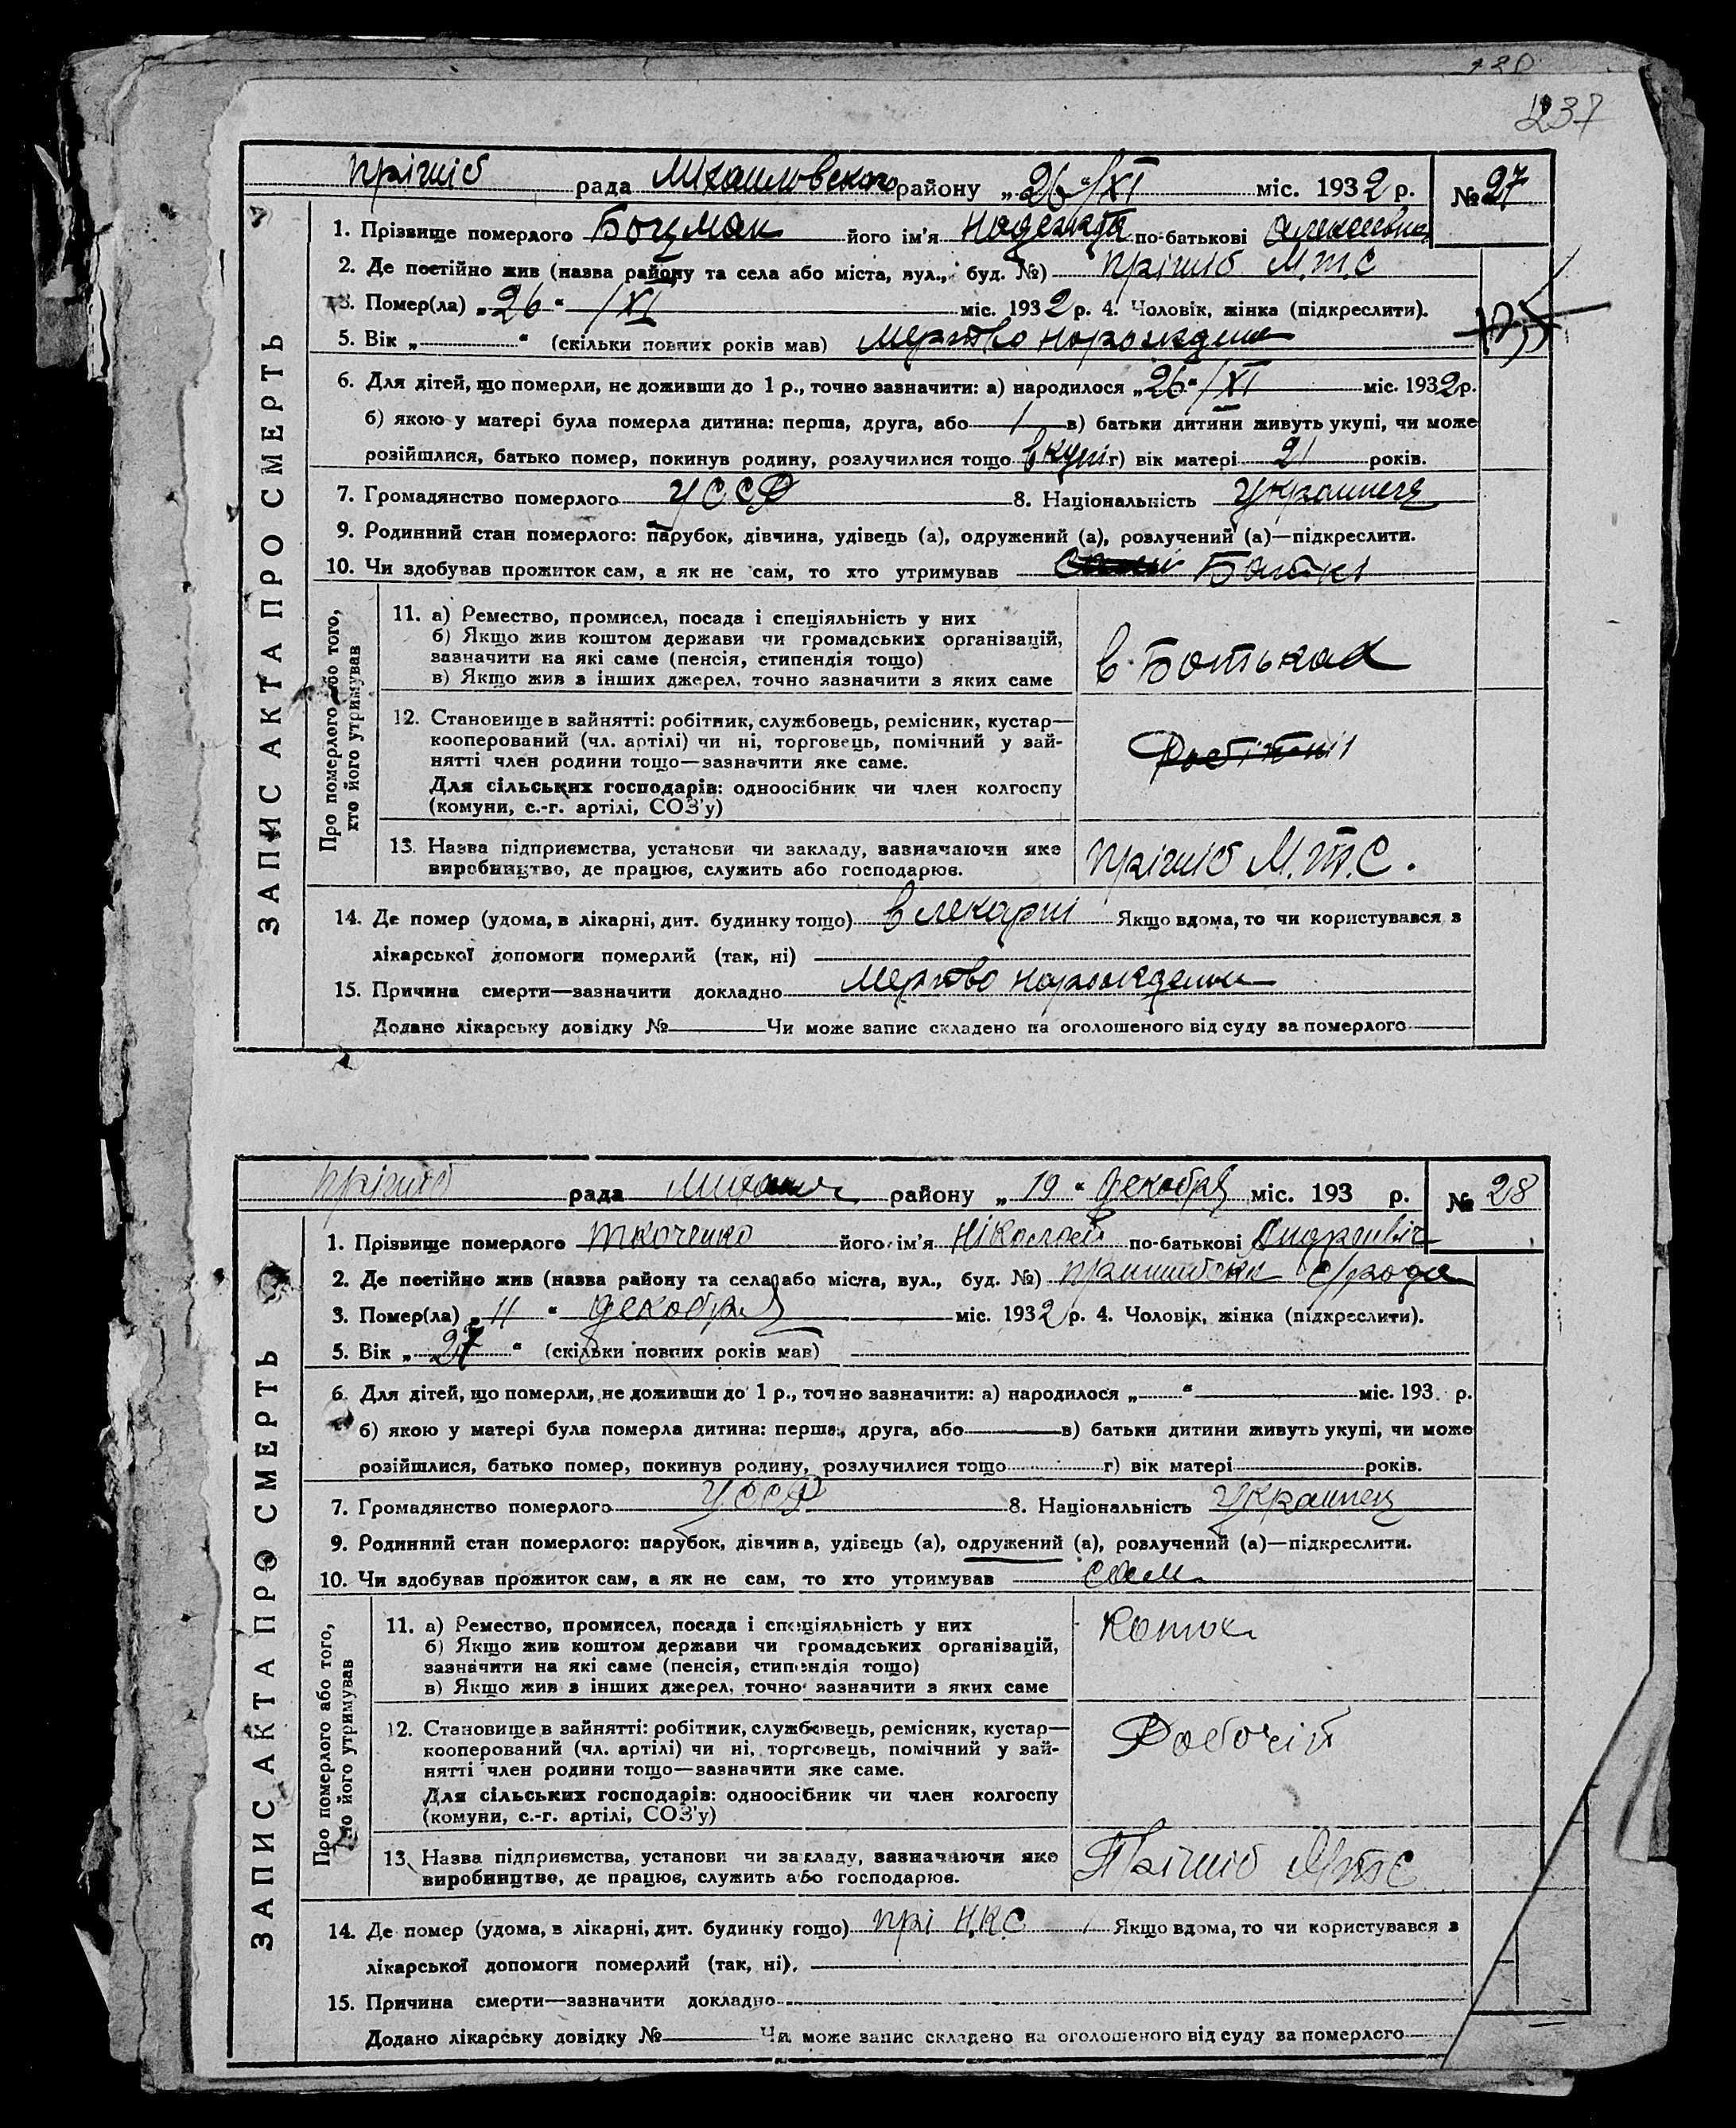 237
Прішіб рада Міхайловского району „26“/XI міс. 1932 р. № 27
ЗАПИС АКТА ПРО СМЕРТЬ
1. Прізвище померлого Боцман його ім'я Надежда по-батькові Алексеевна
2. Де постійно жив (назва району та села або міста, вул., буд. №) Прішіб М.Т.С
3. Помер(ла) „26“ /XI міс. 1932 р. 4. Чоловік, жінка (підкреслити).
5. Вік „ “ (скільки повних років мав) мертво нарождени
6. Для дітей, що померли, не доживши до 1 р., точно зазначити: а) народилося „26“ /XI міс. 1932 р.
б) якою у матері була померла дитина: перша, друга, або 1 в) батьки дитини живуть укупі, чи може
розійшлися, батько помер, покинув родину, розлучилися тощо вкупі г) вік матері 21 років.
7. Громадянство померлого УССР 8. Національність Украинец
9. Родинний стан померлого: парубок, дівчина, удівець (а), одружений (а), розлучений (а)—підкреслити.
10. Чи здобував прожиток сам, а як не сам, то хто утримував Батькі
Про померлого або того, хто його утримував
11. а) Ремество, промисел, посада і спеціяльність у них
б) Якщо жив коштом держави чи громадських організацій,
зазначити на які саме (пенсія, стипендія тощо)
в) Якщо жив з інших джерел, точно зазначити з яких саме
в Батьках
12. Становище в зайнятті: робітник, службовець, ремісник, кустар—
кооперований (чл. артілі) чи ні, торговець, помічний у зай-
нятті член родини тощо—зазначити яке саме.
Для сільських господарів: одноосібник чи член колгоспу
(комуни, с.-г. артілі, СОЗ'у)
13. Назва підприємства, установи чи закладу, зазначаючи яке
виробництво, де працює, служить або господарює.
Прішіб М.Т.С.
14. Де помер (удома, в лікарні, дит. будинку тощо) в лекарні Якщо вдома, то чи користувався з
лікарської допомоги померлий (так, ні)
15. Причина смерти—зазначити докладно мертво нарождени
Додано лікарську довідку № Чи може запис складено на оголошеного від суду за померлого
Прішіб рада району „19“ декабря міс. 193 р. № 28
ЗАПИС АКТА ПРО СМЕРТЬ
1. Прізвище померлого Ткаченко його ім'я Ніколай по-батькові
2. Де постійно жив (назва району та села або міста, вул., буд. №)
3. Помер(ла) „11“ декабря міс. 1932 р. 4. Чоловік, жінка (підкреслити).
5. Вік „27“ (скільки повних років мав)
6. Для дітей, що померли, не доживши до 1 р., точно зазначити: а) народилося „ “ міс. 193 р.
б) якою у матері була померла дитина: перша, друга, або в) батьки дитини живуть укупі, чи може
розійшлися, батько помер, покинув родину, розлучилися тощо г) вік матері років.
7. Громадянство померлого УССР 8. Національність Украинец
9. Родинний стан померлого: парубок, дівчина, удівець (а), одружений (а), розлучений (а)—підкреслити.
10. Чи здобував прожиток сам, а як не сам, то хто утримував сам
Про померлого або того, хто його утримував
11. а) Ремество, промисел, посада і спеціяльність у них
б) Якщо жив коштом держави чи громадських організацій,
зазначити на які саме (пенсія, стипендія тощо)
в) Якщо жив з інших джерел, точно зазначити з яких саме
12. Становище в зайнятті: робітник, службовець, ремісник, кустар—
кооперований (чл. артілі) чи ні, торговець, помічний у зай-
нятті член родини тощо—зазначити яке саме.
Для сільських господарів: одноосібник чи член колгоспу
(комуни, с.-г. артілі, СОЗ'у)
Рабочій
13. Назва підприємства, установи чи закладу, зазначаючи яке
виробництво, де працює, служить або господарює.
Прішіб МТС
14. Де помер (удома, в лікарні, дит. будинку тощо) прі Н.К.С Якщо вдома, то чи користувався з
лікарської допомоги померлий (так, ні).
15. Причина смерти—зазначити докладно
Додано лікарську довідку № Чи може запис складено на оголошеного від суду за померлого